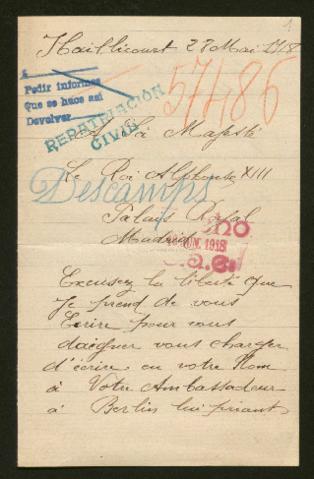 1
Haillicourt 28 Mai 1918
Pedir informes
Que se hace así
Devolver
57486
REPATRIACIÓN
CIVIL
A Sa Majesté
Le Roi Alphonse XIII
Descamps
Palais Royal
Madrid
JUN. 1918
Excusez la liberté que
Je prend de vous
Ecrire pour vous
daigner vous charger
d'écrire en votre Nom
à Votre Ambassadeur
à Berlin lui priant